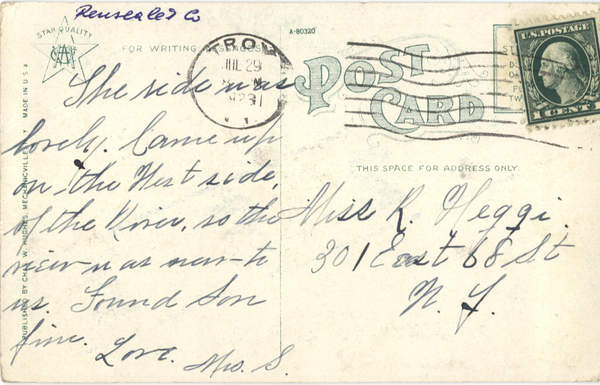 Rensselaer Co
STAR QUALITY
A-80320
FOR WRITING MESSAGES
TROY
JUL 29
N.Y.
U.S. POSTAGE
1 CENT 1
POST CARD
MADE IN U.S.A.
PUBLISHED BY CHAS. W. HUGHES, MECHANICVILLE, N.Y.
THIS SPACE FOR ADDRESS ONLY.
The ride was
lovely. Came up
on the West side,
of the River, so the
view was new to
us. Found Son
fine. Love. Mrs. S.
Miss R. Heggi.
301 East 68 St
N. Y.